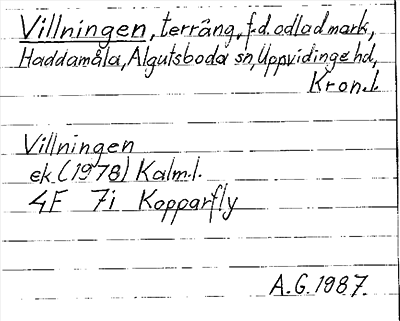 Villningen, terräng, f.d. odlad mark,
Haddamåla, Algutsboda sn, Uppvidinge hd,
Kron.l.
Villningen
ek. (1978) Kalm.l.
4F 7i Kopparfly
A.G. 1987.